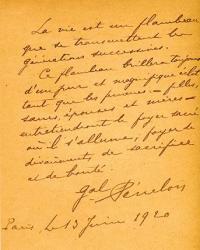 La vie est un flambeau
que se transmettent les
générations successives.
Ce flambeau brillera toujours
d'un pur et magnifique éclat
tant que les femmes – filles,
sœurs, épouses et mères –
entretiendront le foyer sacré
où il s'allume, foyer de
dévouement, de sacrifice
et de bonté.
Gal Pénelon
Paris, le 13 Juin 1920